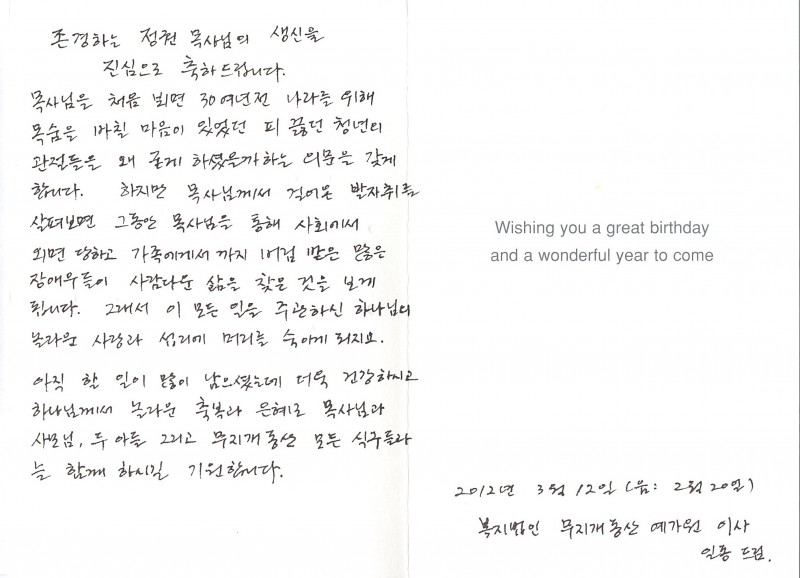 존경하는 정권 목사님의 생신을
진심으로 축하드립니다.
목사님을 처음 뵈면 30여년전 나라를 위해
목숨을 바칠 마음이 있었던 피 끓던 청년의
관절들을 왜 굳게 하셨을까하는 의문을 갖게
합니다. 하지만 목사님께서 걸어온 발자취를
살펴보면 그동안 목사님을 통해 사회에서
외면 당하고 가족에게서 까지 버림 받은 많은
장애우들이 사람다운 삶을 찾은 것을 보게
됩니다. 그래서 이 모든 일을 주관하신 하나님의
놀라운 사랑과 섭리에 머리를 숙이게 되지요.
아직 할 일이 많이 남으셨는데 더욱 건강하시고
하나님께서 놀라운 축복과 은혜로 목사님과
사모님, 두 아들 그리고 무지개동산 모든 식구들과
늘 함께 하시길 기원합니다.
Wishing you a great birthday
and a wonderful year to come
2012년 3월 12일 (음: 2월 20일)
복지법인 무지개동산 예가원 이사
드림.